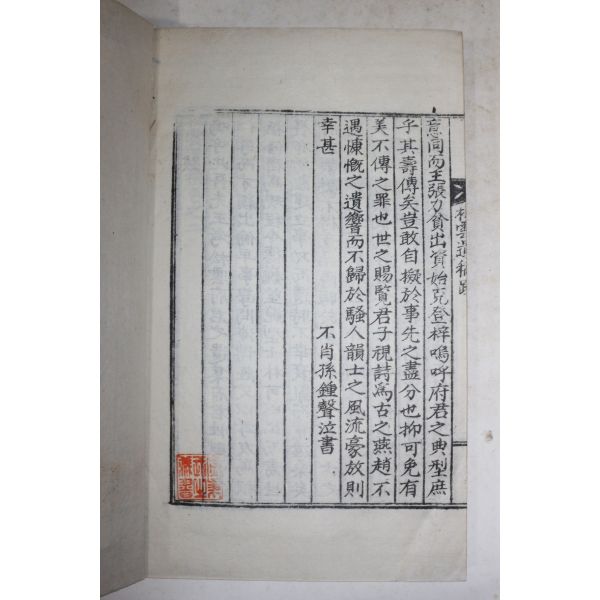 雲遺稿跋
意同而王張力貧出資始克登梓嗚呼府君之典型庶
乎其壽傳矣豈敢自擬於事先之盡分也抑可免有
美不傳之罪也世之賜覽君子視詩爲古之燕趙不
遇慷慨之遺響而不歸於騷人韻士之風流豪放則
幸甚
不肖孫鍾聲泣書